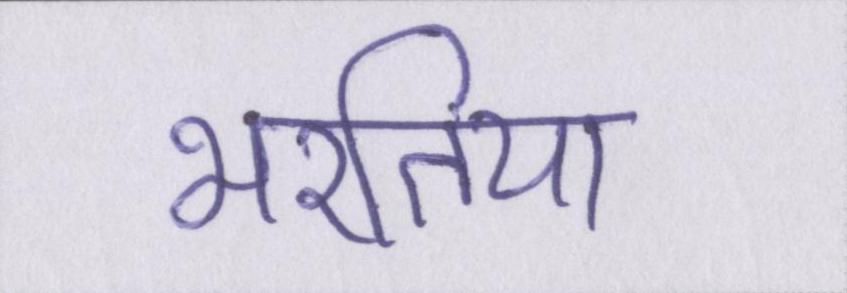 भरतिया